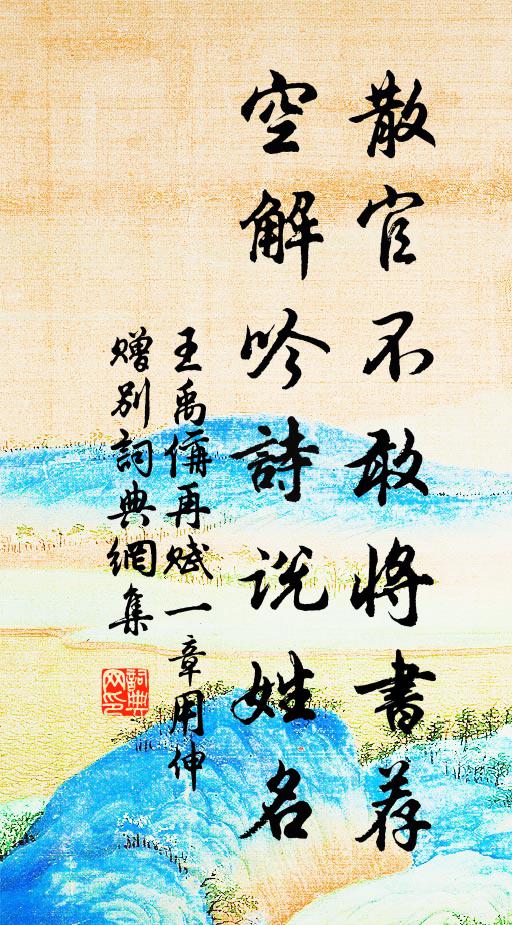 散官不敢將書荐
空解吟詩说姓名
王禹偁再赋一章用伸
赠别詞典網集
詞典网印